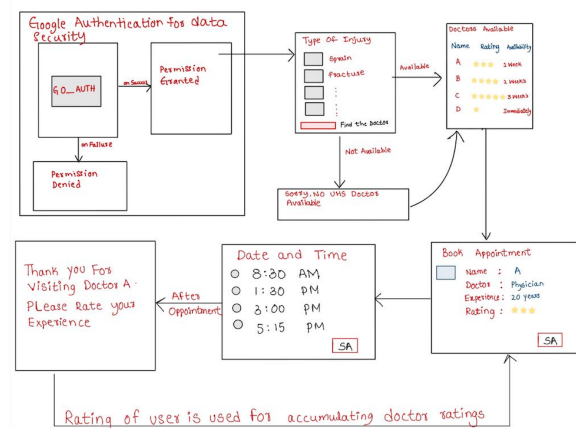 Google Authentication for data
Security
GO__AUTH
on Success
Permission
Granted
on Failure
Permission
Denied
Type Of Injury
Sprain
Fracture
Find the Doctor
Available
Not Available
Sorry, NO UHS Doctor
Available
Doctors Available
Name Rating Availability
A 1 Week
B 2 Weeks
C 3 Weeks
D Immediately
Book Appointment
Name : A
Doctor : Physician
Experience: 20 years
Rating :
SA
Date and Time
8:30 AM
1:30 PM
3:00 PM
5:15 PM
SA
After
Oppointment
Thank you For
Visiting Doctor A.
PLease Rate your
Experience
Rating of user is used for accumulating doctor ratings